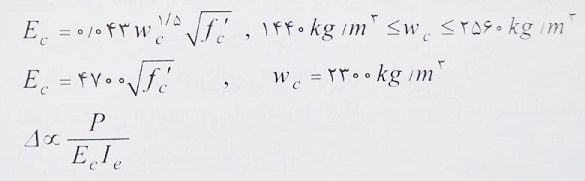 E_c = ۰/۰۴۳ w_c^۱/۵ √f_c′ , ۱۴۴۰ kg /m^۳ ≤ w_c ≤ ۲۵۶۰ kg /m^۳
E_c = ۴۷۰۰ √f_c′ , w_c = ۲۳۰۰ kg /m^۳
Δ ∝ P / E_c I_e